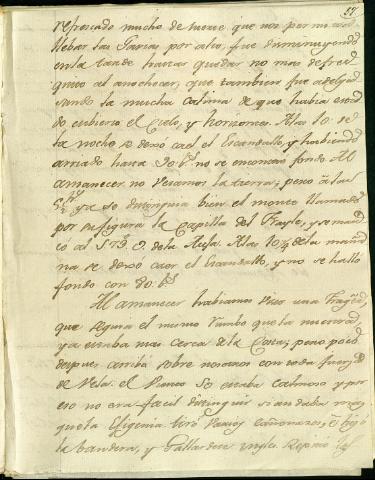 refrescado mucho de suerte que nos permitió
llebar las Gavias por alto, fue disminuyendo
en la tarde hasta quedar no mas de fres-
quito al anochecer, que tambien fue adelga-
zando la mucha calima de que habia esta-
do cubierto el Cielo, y horizontes. A las 10 de
la noche se dexó caer el Escandallo, y habiendo
arriado hasta 90 bs. no se encontró fondo. Al
amanecer no veiamos la tierra; pero á las
5½ ya se distinguia bien el monte llamado
por su figura la Capilla del Frayle, y se mar-
có al O. de la Aguja. A las 10¼ de la maña-
na se dexó caer el Escandallo, y no se halló
fondo con 90 bs.
Al amanecer habiamos visto una Fragata,
que seguia el mismo rumbo que la nuestra,
ya estaba mas cerca de la Costa; pero poco
despues arribó sobre nosotros con toda fuerza
de Vela. el Viento se estaba calmoso y por
eso no era facil distinguir si andaba mas
que la Efigenia tiró varios cañonazos, é hizo
la bandera, y Gallardete Yngles. Repitió